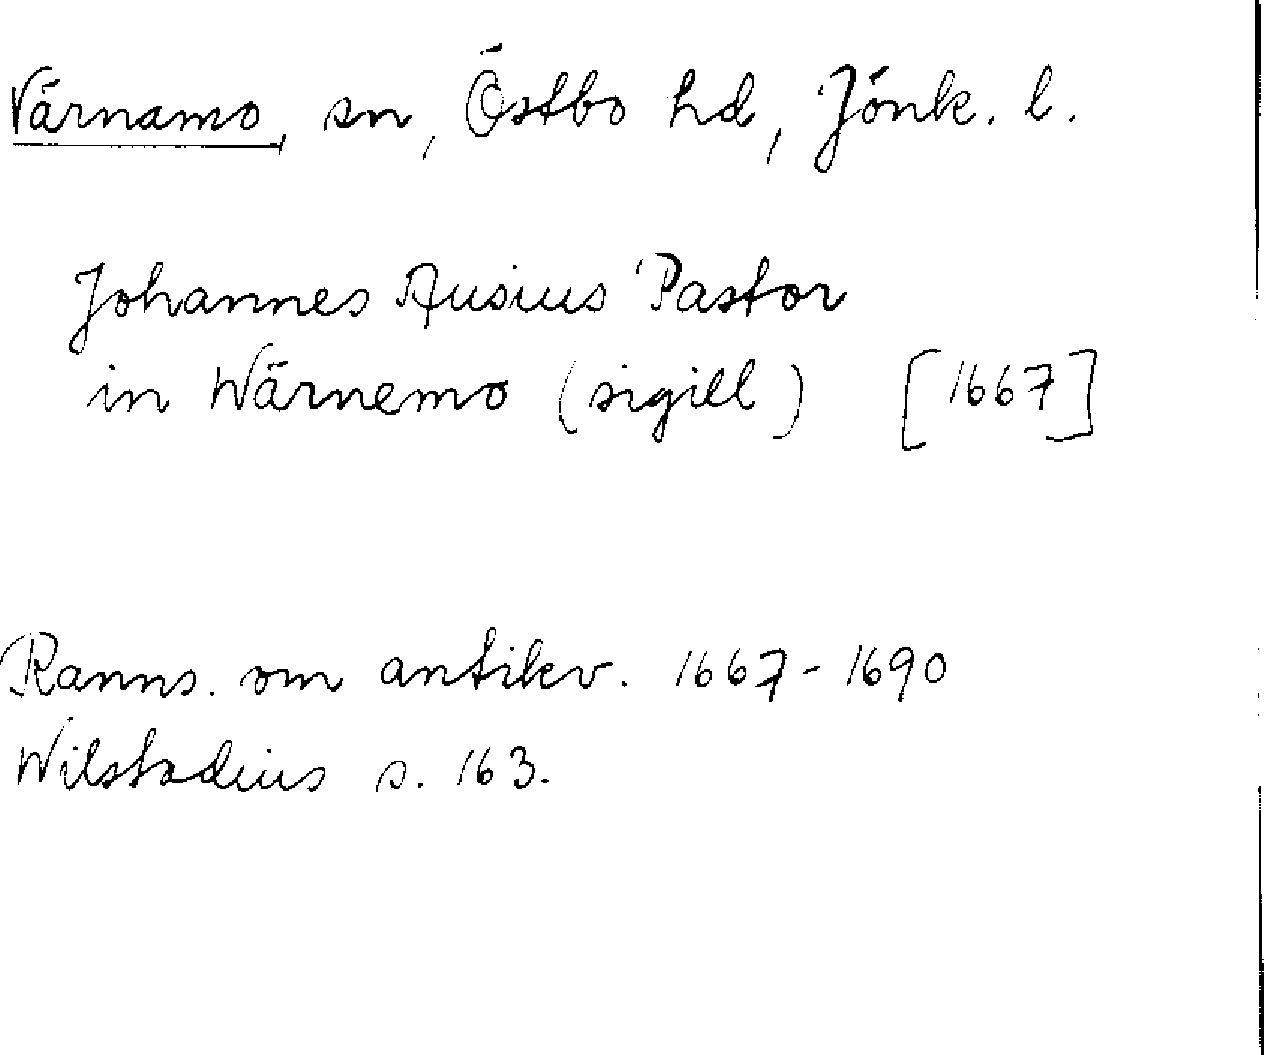 Värnamo, sn, Östbo hd, Jönk. l.
Johannes Rusius Pastor
in Wärnemo (sigill) [1667]
Ranns. om antikv. 1667-1690
Wilstadius s. 163.